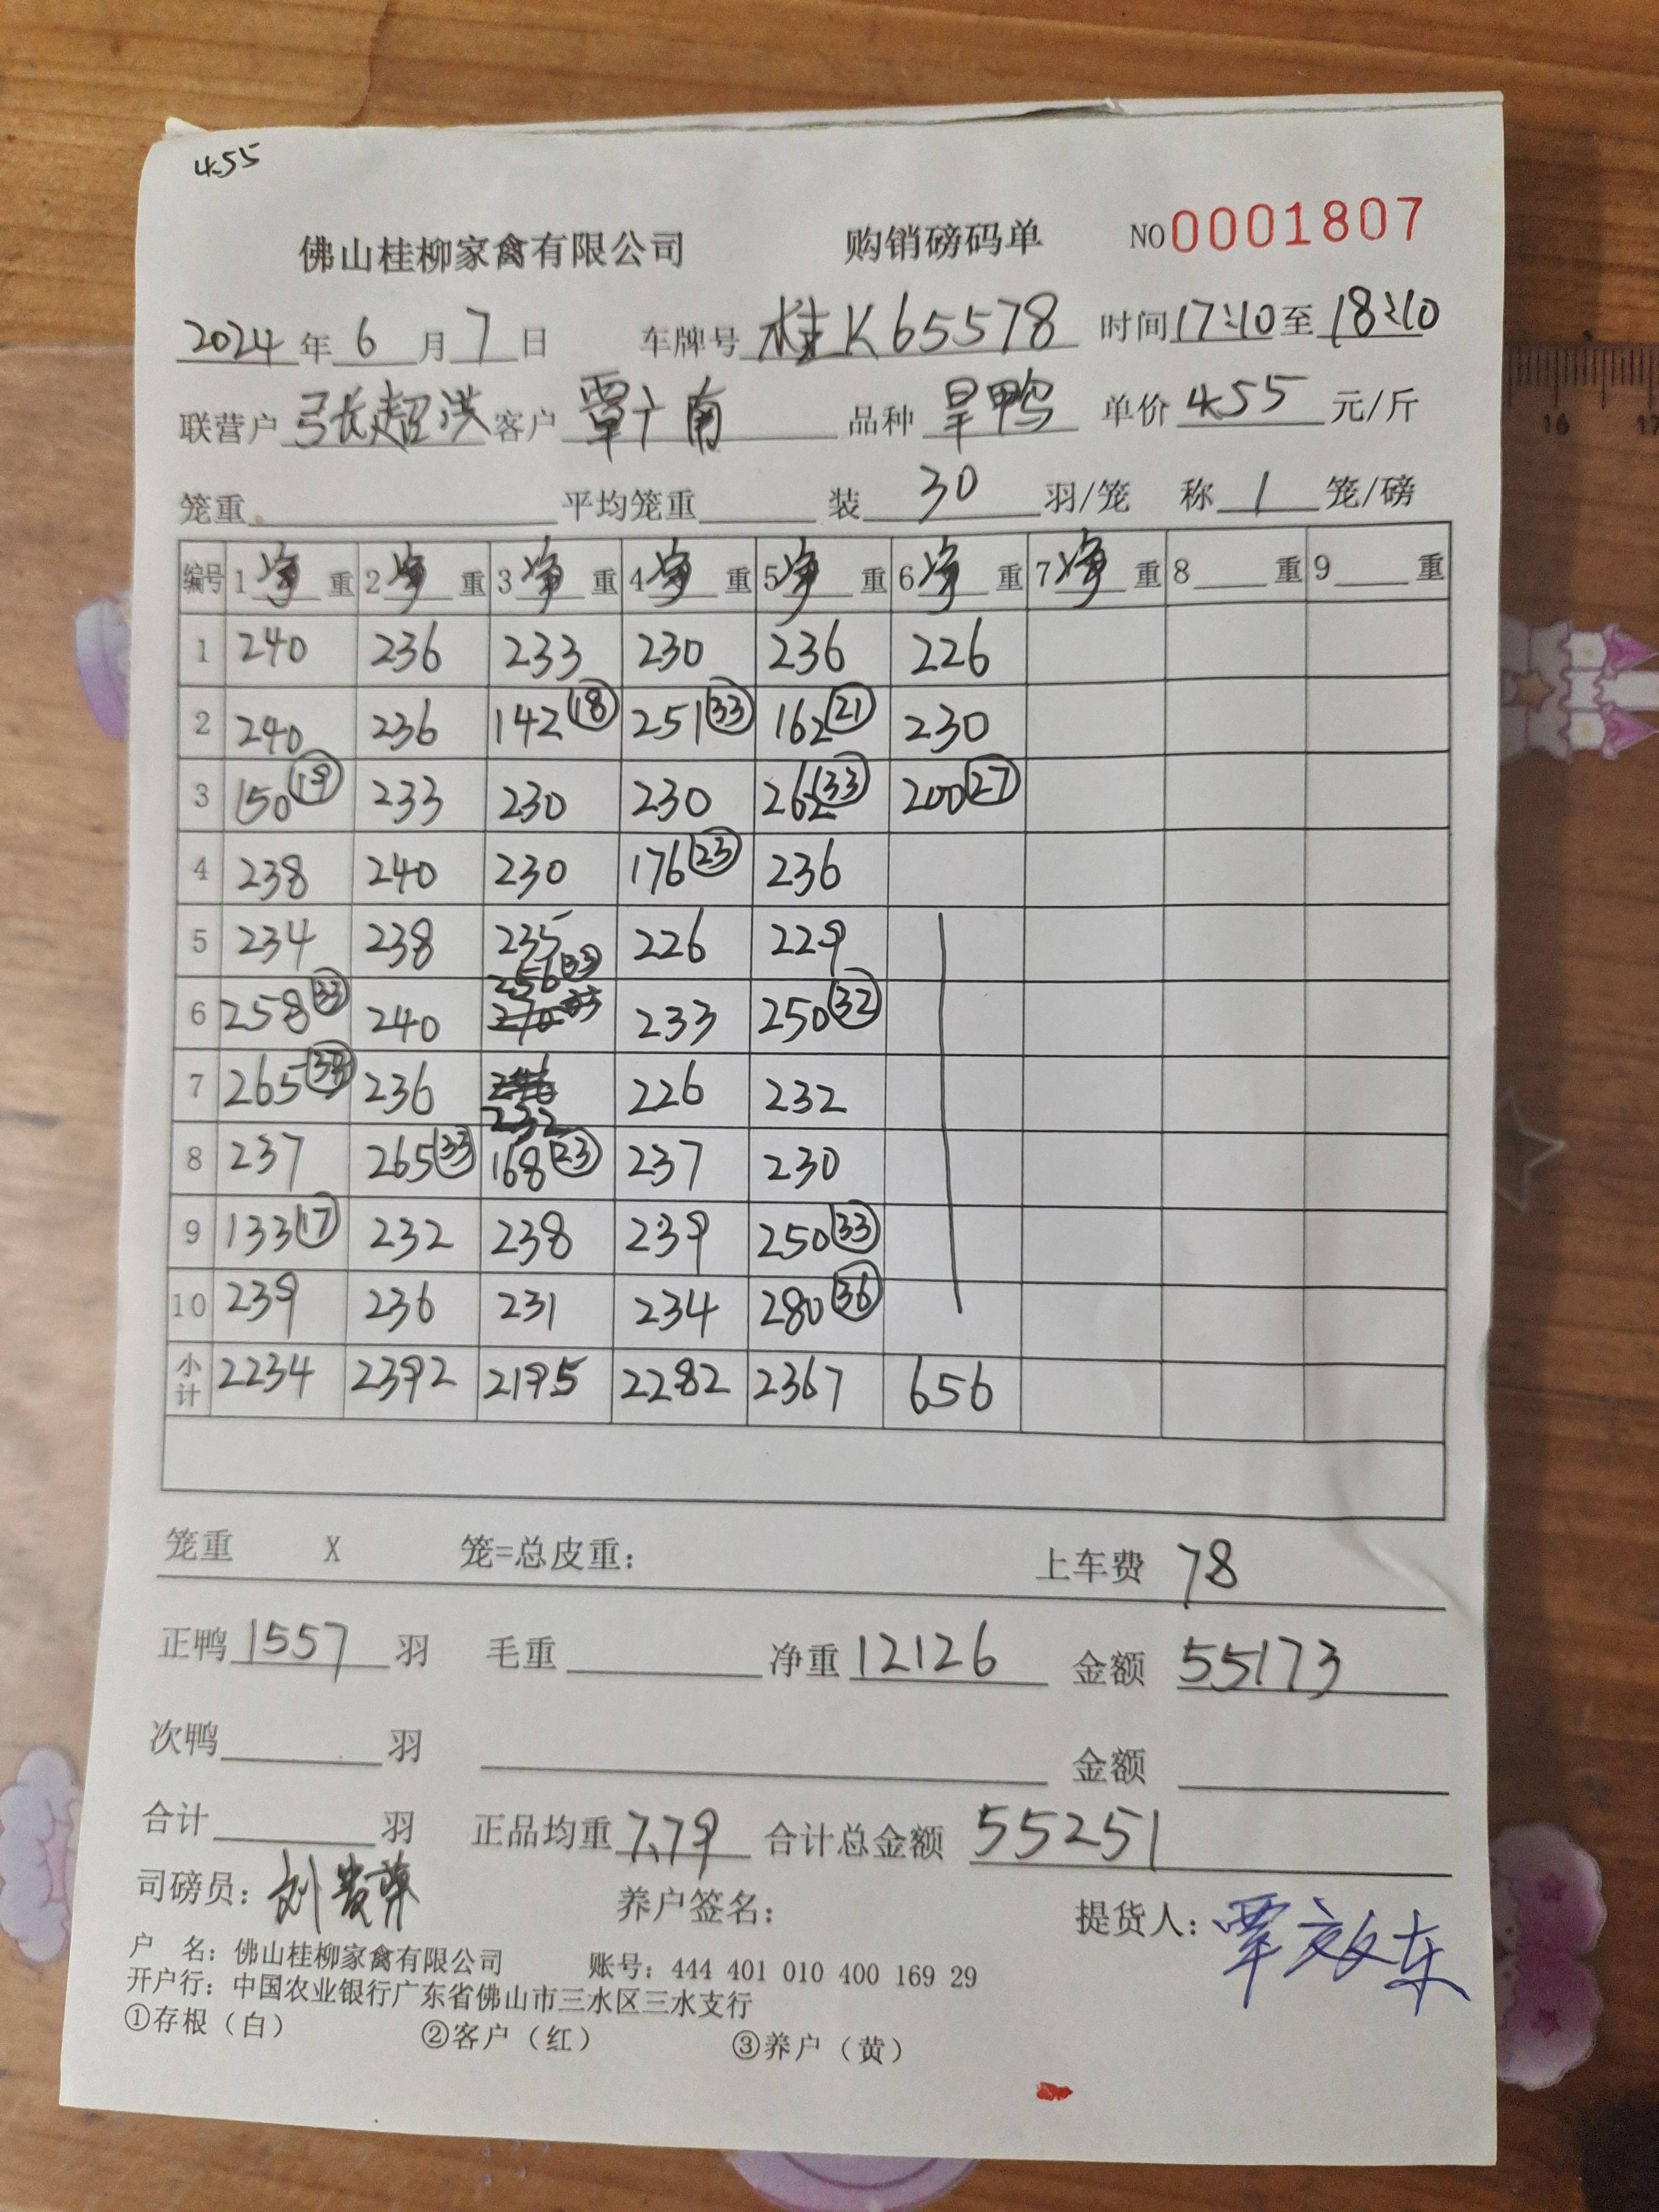 4.55
佛山桂柳家禽有限公司 购销磅码单 NO0001807
2024年6月7日 车牌号 桂K65578 时间17:10至18:10
联营户 张超洪 客户 覃广南 品种 旱鸭 单价 4.55 元/斤
笼重 平均笼重 装 30 羽/笼 称 1 笼/磅
编号 1 净 重 2 净 重 3 净 重 4 净 重 5 净 重 6 净 重 7 净 重 8 重 9 重
1 240 236 233 230 236 226
2 240 236 142 18 251 33 162 21 230
3 150 19 233 230 230 262 33 200 27
4 238 240 230 176 23 236
5 234 238 235 226 229
6 258 33 240 256 33 233 250 32
7 265 236 232 226 232
8 237 265 33 168 23 237 230
9 133 17 232 238 239 250 33
10 239 236 231 234 280 36
小计 2234 2392 2195 2282 2367 656
笼重 X 笼=总皮重: 上车费 78
正鸭 1557 羽 毛重 净重 12126 金额 55173
次鸭 羽 金额
合计 羽 正品均重 7.79 合计总金额 55251
司磅员: 刘 养户签名: 提货人: 覃
户 名: 佛山桂柳家禽有限公司 账号: 444 401 010 400 169 29
开户行: 中国农业银行广东省佛山市三水区三水支行
①存根（白） ②客户（红） ③养户（黄）
16 17